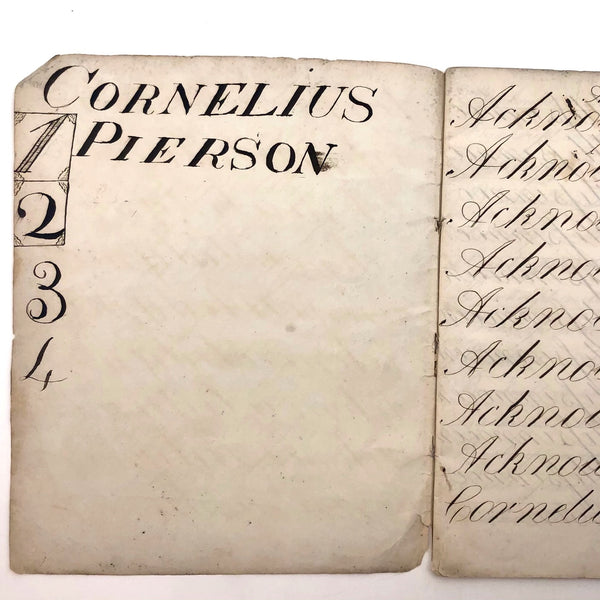 CORNELIUS
PIERSON
1
2
3
4
Ackno
Acknow
Acknow
Acknow
Acknow
Acknow
Acknow
Acknow
Corneliu